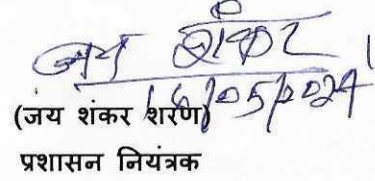 जय शंकर
16/05/2024
(जय शंकर शरण)
प्रशासन नियंत्रक